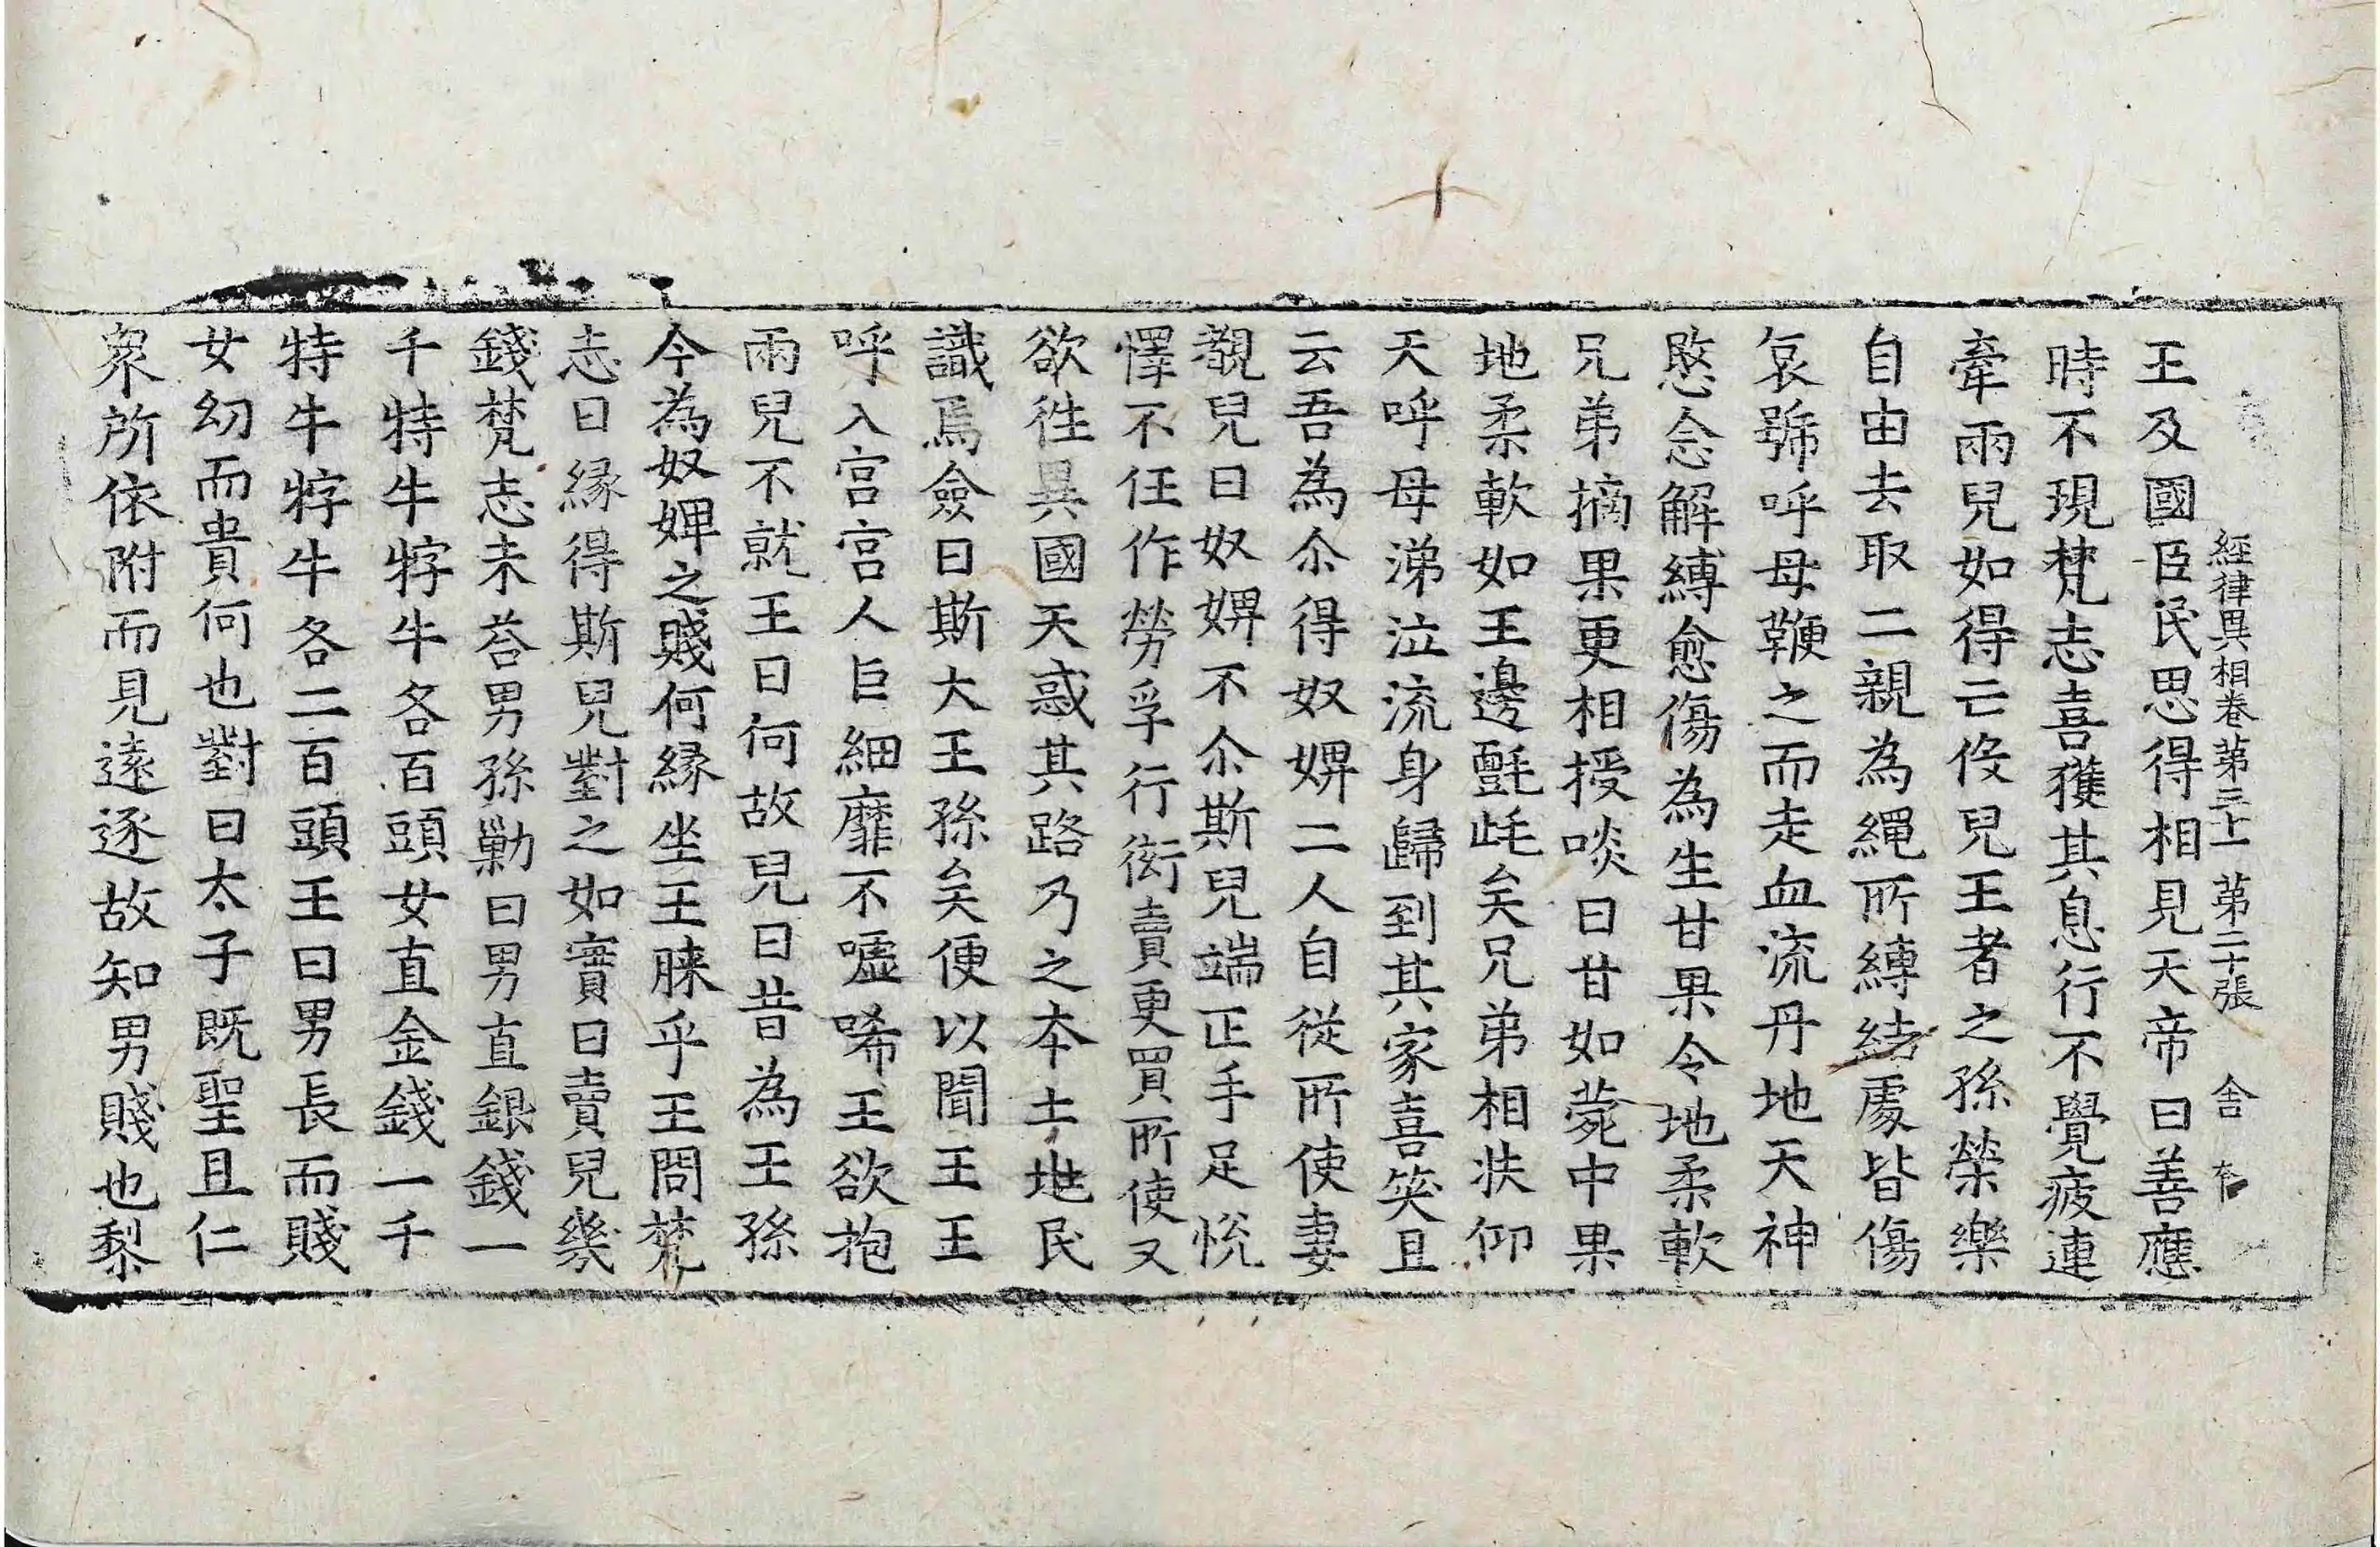 經律異相卷第三十一　第二十張　舎
王及國臣民思得相見天帝曰善應
時不現梵志喜獲其息行不覺疲連
牽兩兒如得云伇兒王者之孫榮樂
自由去取二親為繩所縛結處皆傷
哀號呼母鞭之而走血流丹地天神
愍念解縛愈傷為生甘果令地柔軟
兄弟摘果更相授啖曰甘如菀中果
地柔軟如王邊氍毹矣兄弟相扶仰
天呼母涕泣流身歸到其家喜笑且
云吾為尒得奴婢二人自從所使妻
覩兒曰奴婢不尒斯兒端正手足悅
懌不任作勞孚行衒賣更買所使又
欲徃異國天惑其路乃之本土地民
識焉僉曰斯大王孫矣便以聞王王
呼入宮宮人巨細靡不噓唏王欲抱
兩兒不就王曰何故兒曰昔為王孫
今為奴婢之賤何緣坐王膝乎王問梵
志曰緣得斯兒對之如實曰賣兒幾
錢梵志未荅男孫勦曰男直銀錢一
千特牛牸牛各百頭女直金錢一千
特牛牸牛各二百頭王曰男長而賤
女幼而貴何也對曰太子既聖且仁
衆所依附而見遠逐故知男賤也黎